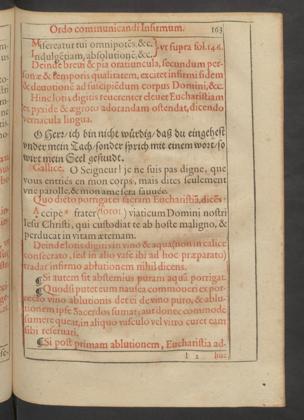 Ordo communicandi Infirmum. 163
Misereatur tui omnipotēs, &c. } vt supra fol. 146.
Indulgētiam, absolutionē, &c.
Deinde breui & pia oratiuncula, secundum per-
sonæ & temporis qualitatem, excitet infirmi fidem
& deuotionē ad suscipiēdum corpus Domini, &c.
Hinc lotis digitis reuerenter eleuet Eucharistiam
ex pyxide & ægroto adorandam ostendat, dicendo
vernacula lingua.
O Herr/ ich bin nicht würdig/ daß du eingehest
vnder mein Tach/ sonder sprich mit einem wort/ so
wirt mein Seel gesundt.
Gallicè. O Seigneur! je ne suis pas digne, que
vous entriés en mon corps, mais dites seulement
vne parolle, & mon ame sera sauuée.
Quo dicto porrigat ei sacram Eucharistiā, dicēs
Accipe frater (soror) viaticum Domini nostri
Iesu Christi, qui custodiat te ab hoste maligno, &
perducat in vitam æternam.
Deinde lotis digitis in vino & aqua (non in calice
consecrato, sed in alio vase ibi ad hoc præparato)
tradat infirmo ablutionem nihil dicens.
¶ Si autem sit abstemius puram aquā porrigat.
¶ Quodsi putet eum nausea commoueri ex por-
recto vino ablutionis det ei de vino puro, & ablu-
tionem ipse Sacerdos sumat: aut donec commode
sumere queat, in aliquo vasculo vel vitro curet eam
sibi reseruari.
¶ Si post primam ablutionem, Eucharistia ad-
huc